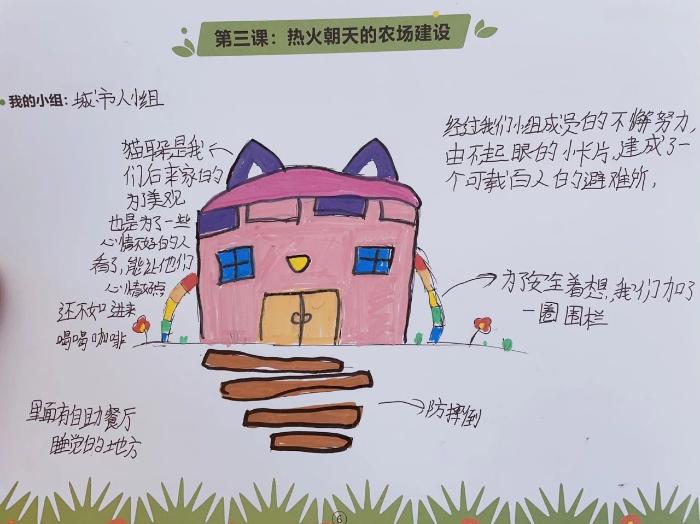 第三课：热火朝天的农场建设
我的小组：城市人小组
经过我们小组成员的不懈努力，
由不起眼的小卡片，建成了一
个可载百人的避难所，
猫耳朵是我
们后来家的
为了美观
也是为了一些
心情不好的人
看了，能让他们
心情好点
还不如进来
喝喝咖啡
为了安全着想，我们加了
一圈围栏
里面有自助餐厅
睡觉的地方
防摔倒
6